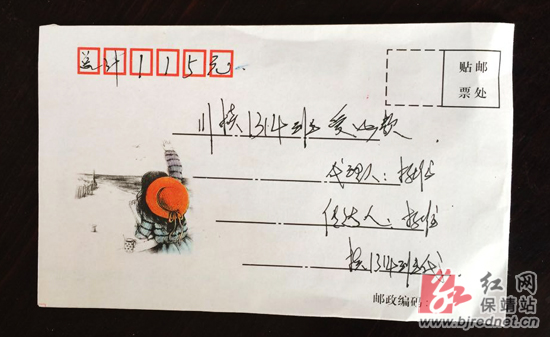 总计115元.
贴邮
票处
川接1314班爱心款.
代理人:
传达人:
1314班
邮政编码:
红网
保靖站
www.bjrednet.cn